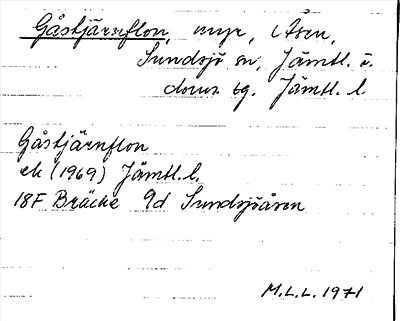 Gåstjärnflon, myr, Åsen,
Sundsjö sn, Jämtl. ö.
doms. tg. Jämtl. l.
Gåstjärnflon
ek (1969) Jämtl. l.
18F Bräcke 9d Sundsjöåsen
M.L.L. 1971